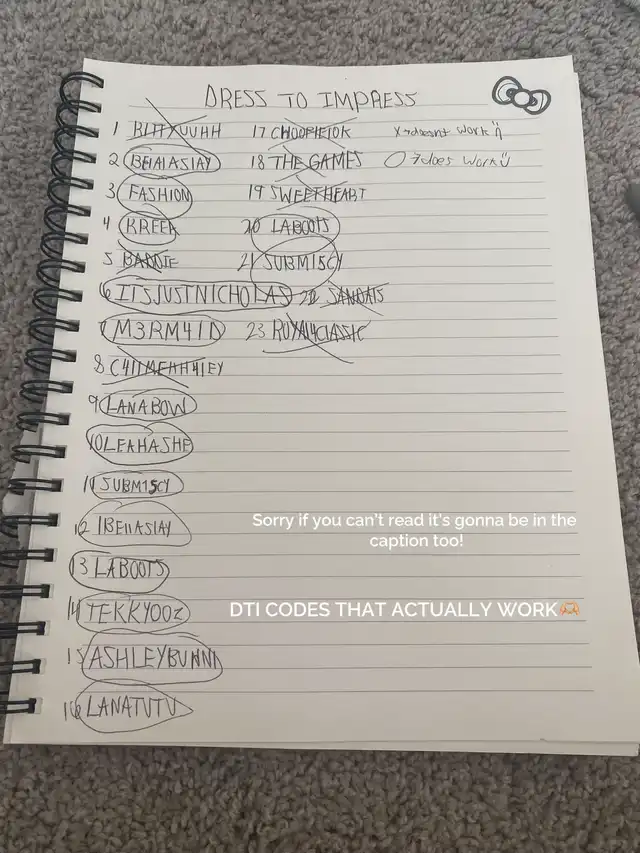 DRESS TO IMPRESS
1 BITTYUUHH 17 CHOOPIE10K X→doesnt work
2 BE11A1ASLAY 18 THE GAMES O→does work
3 FASHION 19 SWEETHEART
4 KREEK 20 LABOOTS
5 BADDIE 21 SUBM15CY
6 ITSJUSTNICHOLAS 22 SANDATS
7 M3RM41D 23 ROYAL4CLASSIC
8
9 LANABOW
10 LEAHASHE
11 SUBM15CY
12 1BE11ASLAY
13 LABOOTS
14 TEKKYOOZ
15 ASHLEYBUNNI
16 LANATUTU
Sorry if you can't read it's gonna be in the
caption too!
DTI CODES THAT ACTUALLY WORK